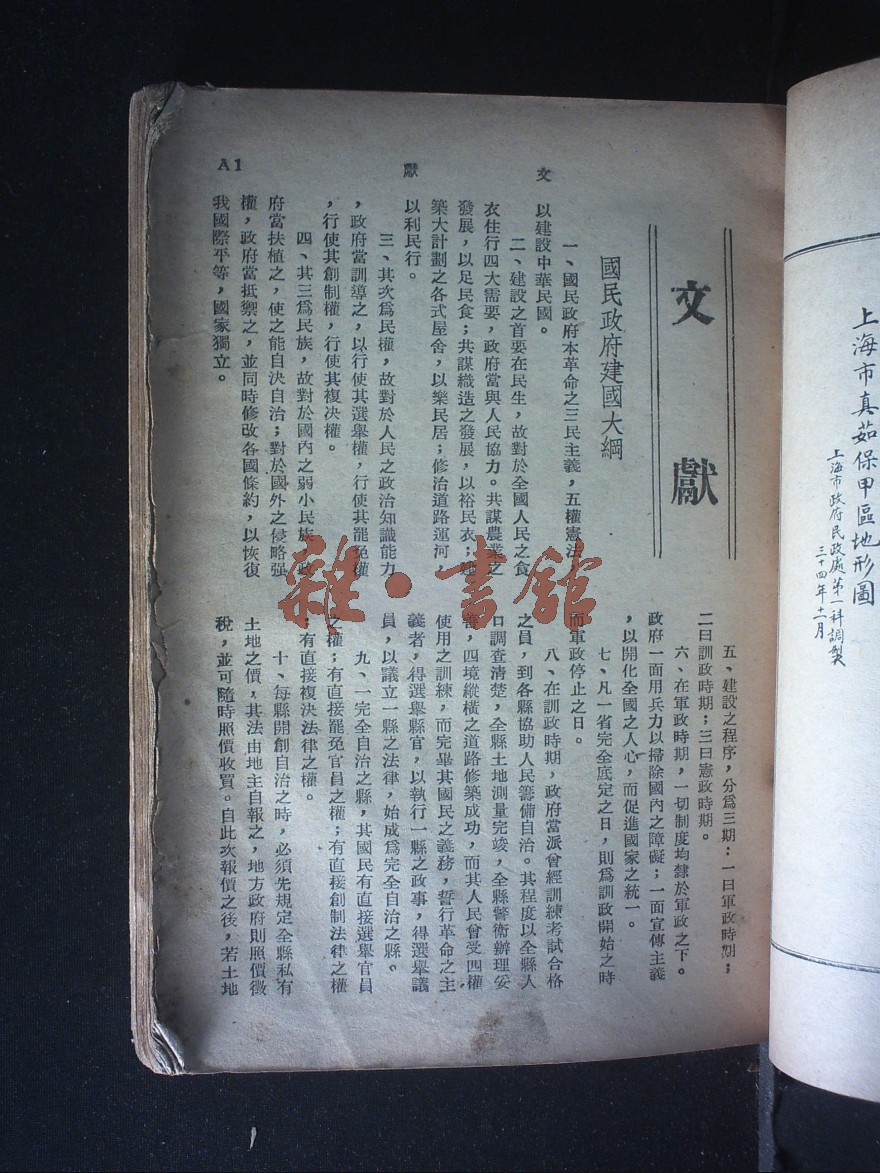 上海市真茹保甲區地形圖
上海市政府民政處第一科調製
三十四年十二月
文獻
國民政府建國大綱
一、國民政府本革命之三民主義，五權憲法，
以建設中華民國。
二、建設之首要在民生，故對於全國人民之食
衣住行四大需要，政府當與人民協力。共謀農業之
發展，以足民食；共謀織造之發展，以裕民衣；建
築大計劃之各式屋舍，以樂民居；修治道路運河，
以利民行。
三、其次爲民權，故對於人民之政治知識能力
，政府當訓導之，以行使其選舉權，行使其罷免權
，行使其創制權，行使其複决權。
四、其三爲民族，故對於國內之弱小民族，政
府當扶植之，使之能自决自治；對於國外之侵略强
權，政府當抵禦之，並同時修改各國條約，以恢復
我國際平等，國家獨立。
五、建設之程序，分爲三期：一曰軍政時期；
二曰訓政時期；三曰憲政時期。
六、在軍政時期，一切制度均隸於軍政之下。
政府一面用兵力以掃除國內之障礙；一面宣傳主義
，以開化全國之人心，而促進國家之統一。
七、凡一省完全底定之日，則爲訓政開始之時
而軍政停止之日。
八、在訓政時期，政府當派曾經訓練考試合格
之員，到各縣協助人民籌備自治。其程度以全縣人
口調查清楚，全縣土地測量完竣，全縣警衛辦理妥
善，四境縱橫之道路修築成功，而其人民曾受四權
使用之訓練，而完畢其國民之義務，誓行革命之主
義者，得選舉縣官，以執行一縣之政事，得選舉議
員，以議立一縣之法律，始成爲完全自治之縣。
九、一完全自治之縣，其國民有直接選舉官員
之權；有直接罷免官員之權；有直接創制法律之權
；有直接複决法律之權。
十、每縣開創自治之時，必須先規定全縣私有
土地之價，其法由地主自報之，地方政府則照價徵
稅，並可隨時照價收買。自此次報價之後，若土地
文獻
A1
雜·書館